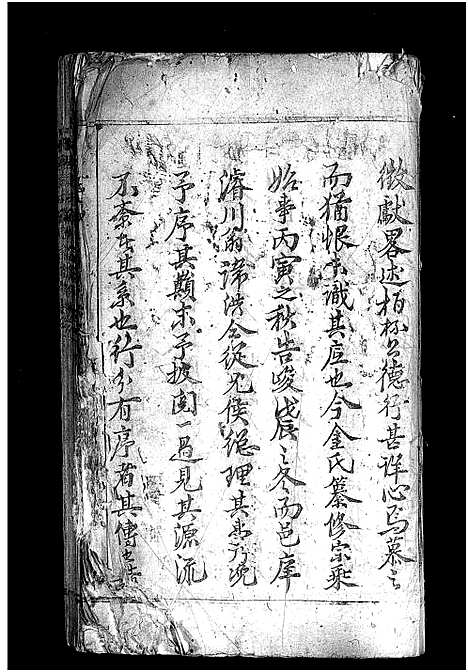 徵獻畧述栢林公德行甚詳心焉慕之
而猶恨未識其店也今金氏纂修宗乘
始事丙寅之秋告峻戊辰之冬而邑庠
濬川翁諱洪全從兄侯總理其事乃浼
予序其顛末予披閱一過見其源流
不紊者其系也行分有序者其傳也